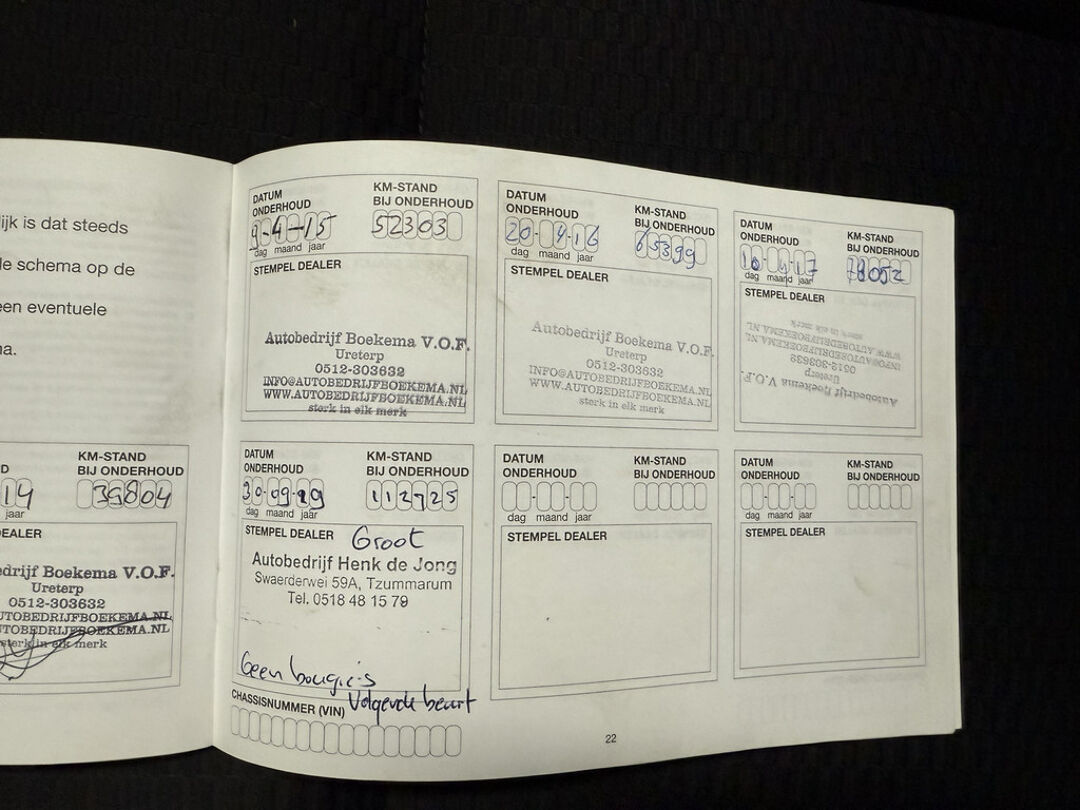 ijk is dat steeds
le schema op de
een eventuele
na.
D
KM-STAND
BIJ ONDERHOUD
14
39804
jaar
DEALER
edrijf Boekema V.O.F.
Ureterp
0512-303632
AUTOBEDRIJFBOEKEMA.NL
AUTOBEDRIJFBOEKEMA.NL
sterk in elk merk
DATUM
ONDERHOUD
KM-STAND
BIJ ONDERHOUD
9-4-15
52303
dag maand jaar
STEMPEL DEALER
Autobedrijf Boekema V.O.F.
Ureterp
0512-303632
INFO@AUTOBEDRIJFBOEKEMA.NL
WWW.AUTOBEDRIJFBOEKEMA.NL
sterk in elk merk
DATUM
ONDERHOUD
KM-STAND
BIJ ONDERHOUD
20-4-16
65399
dag maand jaar
STEMPEL DEALER
Autobedrijf Boekema V.O.F.
Ureterp
0512-303632
INFO@AUTOBEDRIJFBOEKEMA.NL
WWW.AUTOBEDRIJFBOEKEMA.NL
sterk in elk merk
DATUM
ONDERHOUD
KM-STAND
BIJ ONDERHOUD
10-4-17
78052
dag maand jaar
STEMPEL DEALER
Autobedrijf Boekema V.O.F.
Ureterp
0512-303632
INFO@AUTOBEDRIJFBOEKEMA.NL
WWW.AUTOBEDRIJFBOEKEMA.NL
sterk in elk merk
DATUM
ONDERHOUD
KM-STAND
BIJ ONDERHOUD
30-09-19
112725
dag maand jaar
STEMPEL DEALER Groot
Autobedrijf Henk de Jong
Swaerderwei 59A, Tzummarum
Tel. 0518 48 15 79
Geen bougie's
Volgende beurt
CHASSISNUMMER (VIN)
DATUM
ONDERHOUD
KM-STAND
BIJ ONDERHOUD
dag maand jaar
STEMPEL DEALER
DATUM
ONDERHOUD
KM-STAND
BIJ ONDERHOUD
dag maand jaar
STEMPEL DEALER
22